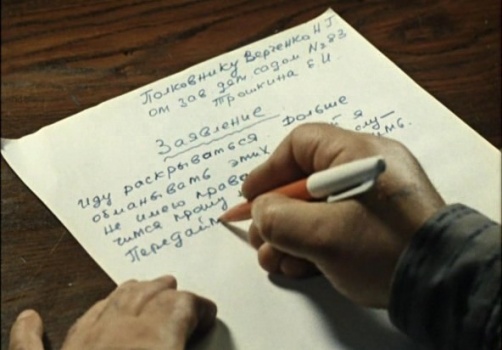 Полковнику Верченко Н Г
от зав дет. садом № 83
Трошкина Е.И.
Заявление
Иду раскрываться. Больше
обманывать этих я
не имею права слу–
чится прошу ить.
Передайт